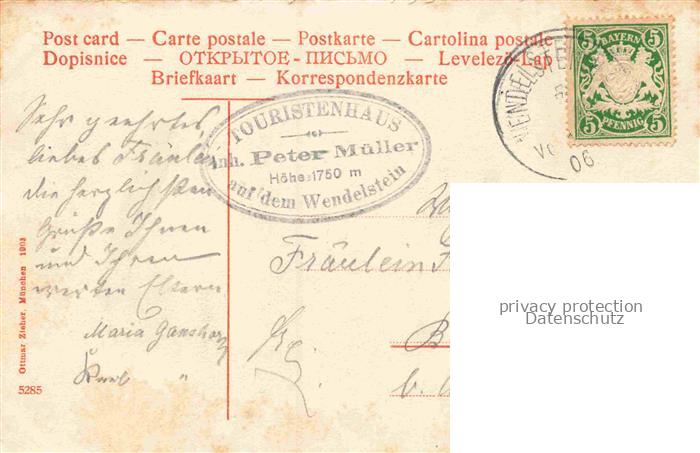 Post card — Carte postale — Postkarte — Cartolina postale
Dopisnice — ОТКРЫТОЕ-ПИСЬМО — Levelező-Lap
Briefkaart — Korrespondenzkarte
BAYERN
5 5
5 PFENNIG 5
WENDELSTEIN
06
TOURISTENHAUS
Inh. Peter Müller
Höhe: 1750 m
auf dem Wendelstein
Sehr geehrtes,
liebes Fräulein
die herzlichsten
Grüße Ihnen
und Ihren
werten Eltern
Maria
"
Fräulein
B
b.
privacy protection
Datenschutz
Ottmar Zieher, München 1903
5285